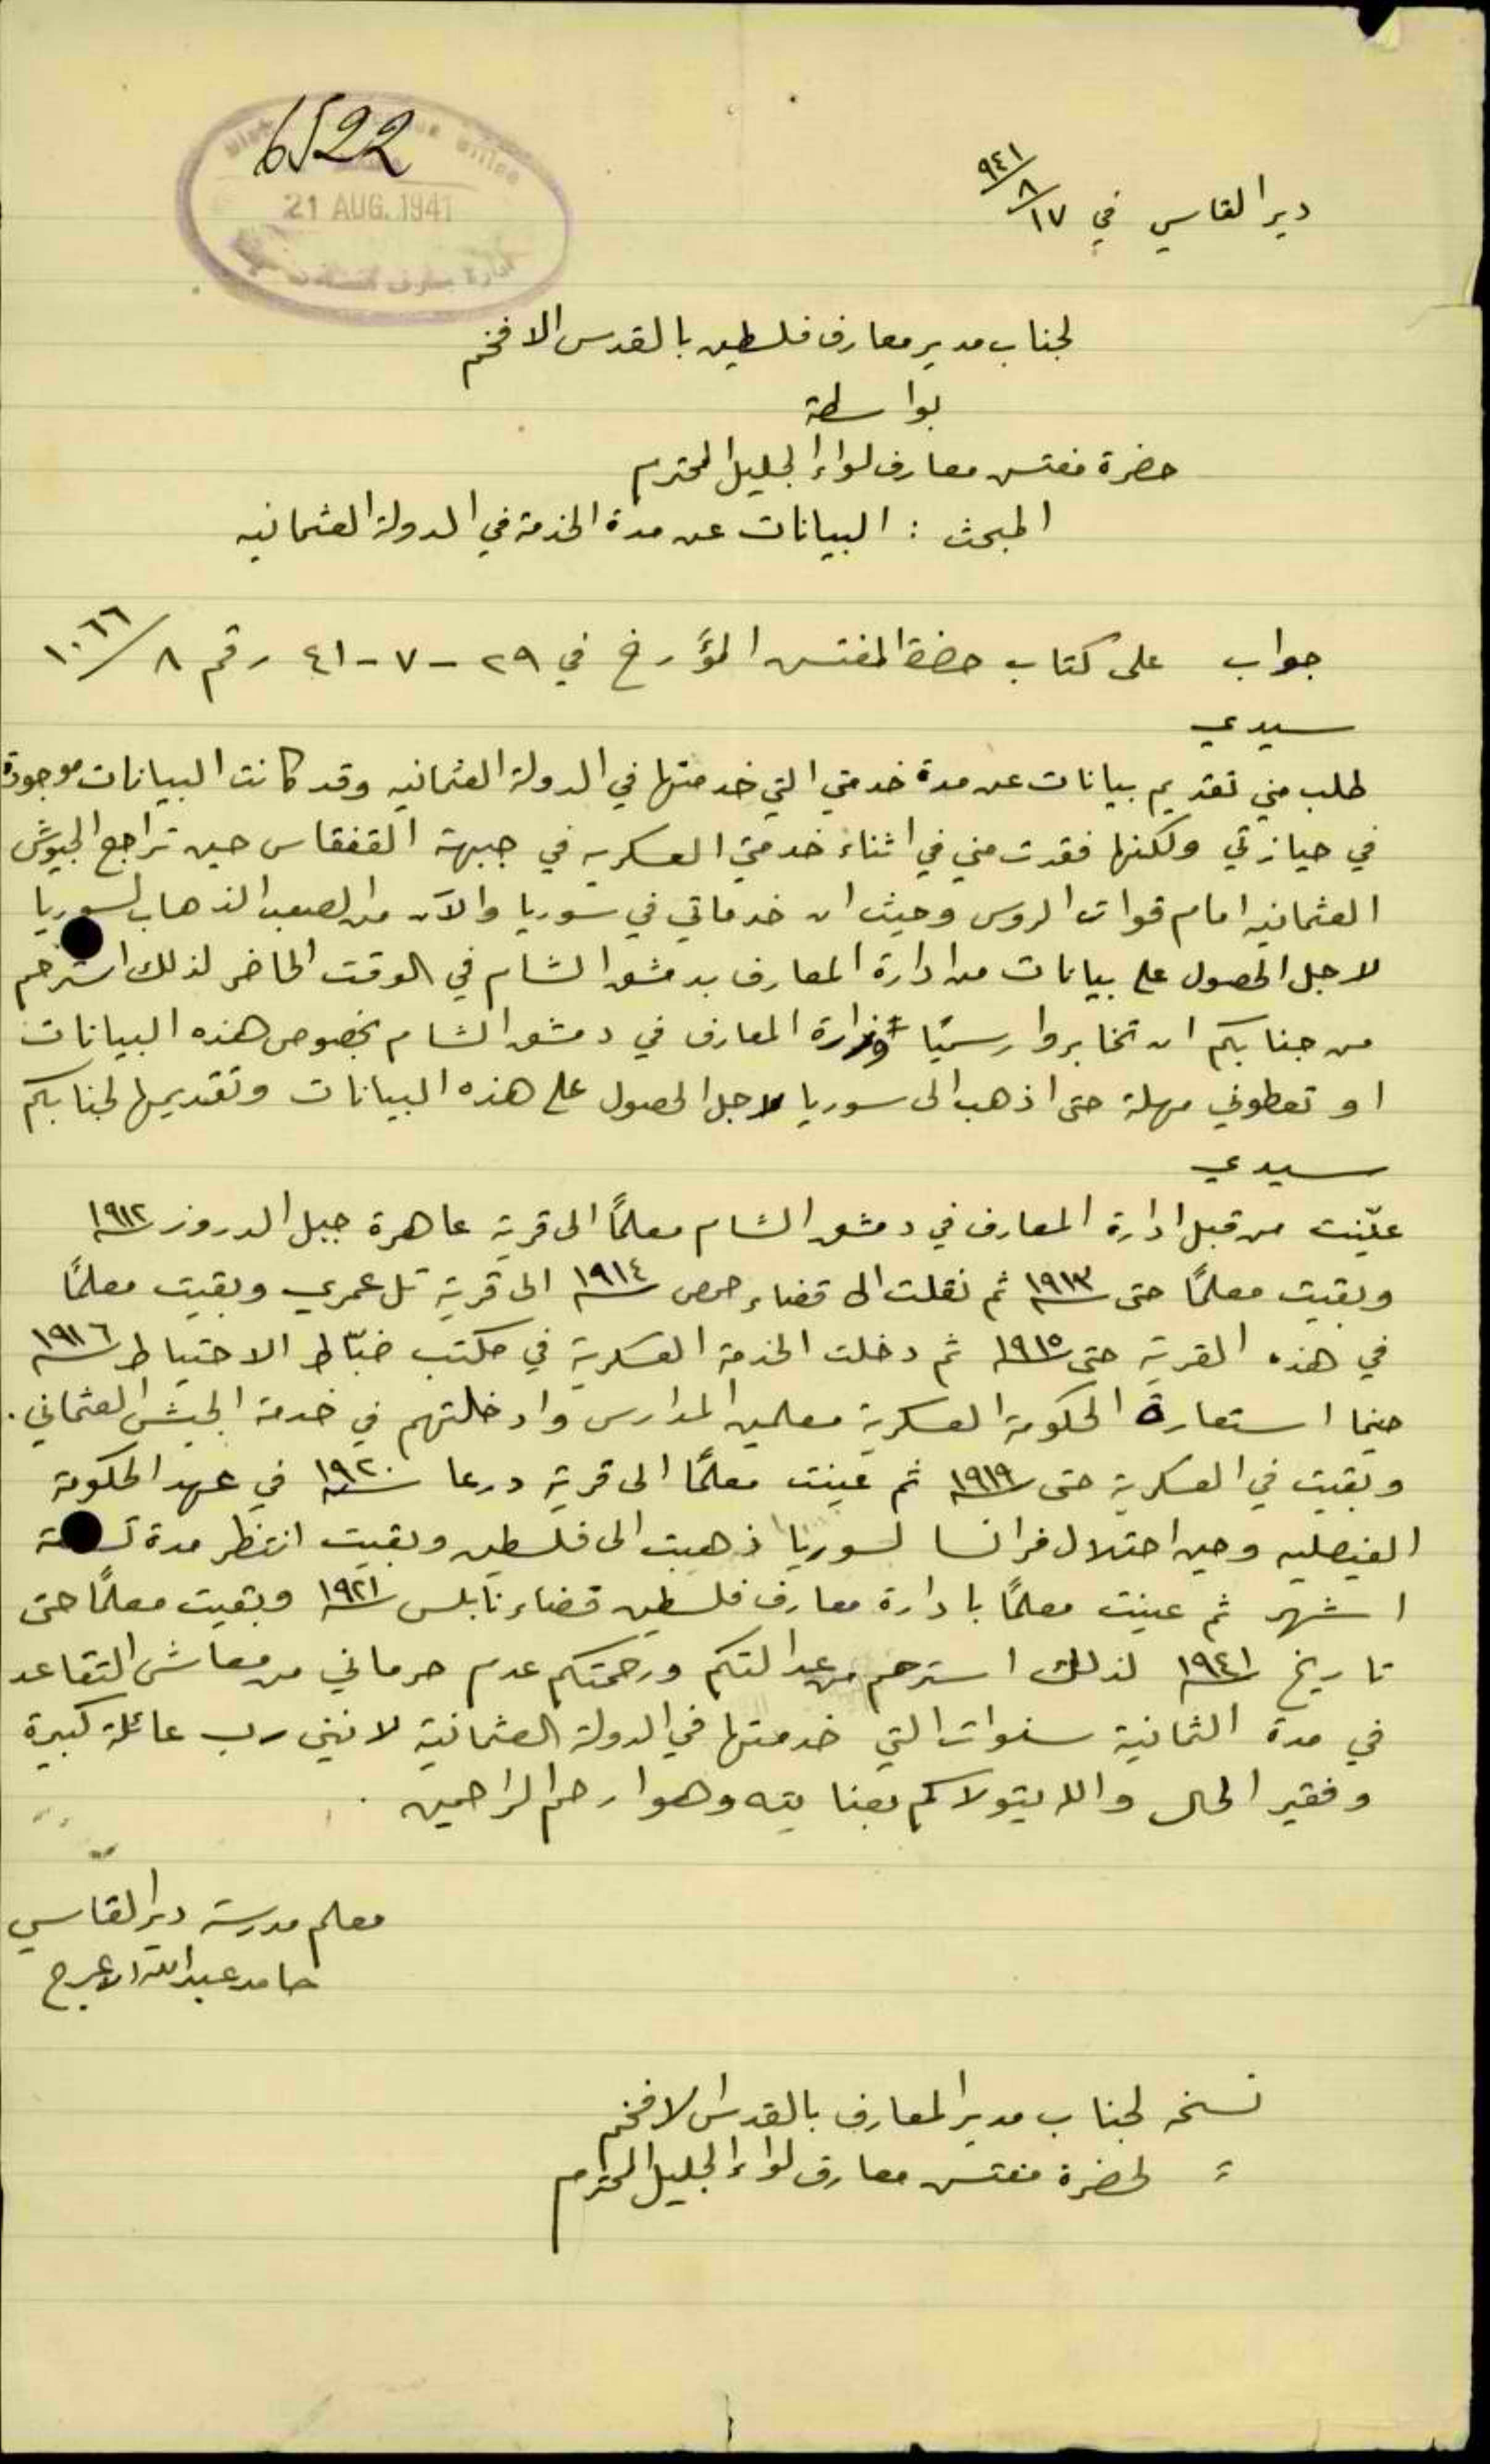 6522
21 AUG. 1941
دير القاسي في ١٧/٨/٩٤١
لجناب مدير معارف فلسطين بالقدس الافخم
بواسطة
حضرة مفتش معارف لواء الجليل المحترم
المبحث : البيانات عن مدة الخدمة في الدولة العثمانيه
جواب على كتاب حضرة المفتش المؤرخ في ٢٩-٧-٤١ رقم ٨/١٠٦٦
سيدي
طلب مني تقديم بيانات عن مدة خدمتي التي خدمتها في الدولة العثمانيه وقد كانت البيانات موجودة
في حيازتي ولكنها فقدت مني في اثناء خدمتي العسكريه في جبهة القفقاس حين تراجع الجيوش
العثمانيه امام قوات الروس وحيث ان خدماتي في سوريا والآن من الصعب الذهاب لسوريا
لاجل الحصول على بيانات من ادارة المعارف بدمشق الشام في الوقت الحاضر لذلك استرحم
من جنابكم ان تخابروا رسميًا وزارة المعارف في دمشق الشام بخصوص هذه البيانات
او تعطوني مهلة حتى اذهب الى سوريا لاجل الحصول على هذه البيانات وتقديمها لجنابكم
سيدي
عيّنت من قبل ادارة المعارف في دمشق الشام معلمًا الى قرية عاهرة جبل الدروز ١٩١٢
وبقيت معلمًا حتى ١٩١٣ ثم نقلت الى قضاء حمص ١٩١٤ الى قرية تل عمري وبقيت معلمًا
في هذه القرية حتى ١٩١٥ ثم دخلت الخدمة العسكرية في مكتب ضبّاط الاحتياط ١٩١٦
حينما استعارة الحكومة العسكرية معلمين المدارس وادخلتهم في خدمة الجيش العثماني .
وبقيت في العسكرية حتى ١٩١٩ ثم عينت معلمًا الى قرية درعا ١٩٢٠ في عهد الحكومة
الفيصليه وحين احتلال فرانسا لسوريا ذهبت الى فلسطين وبقيت انتظر مدة
اشهر ثم عينت معلمًا بادارة معارف فلسطين قضاء نابلس ١٩٢١ وبقيت معلمًا حتى
تاريخ ١٩٤١ لذلك استرحم من عدالتكم ورحمتكم عدم حرماني من معاش التقاعد
في مدة الثمانية سنوات التي خدمتها في الدولة العثمانية لانني رب عائلة كبيرة
وفقير الحال والله يتولاكم بعنايته وهو ارحم الراحمين .
معلم مدرسة دير القاسي
حامد عبدالله الاعرج
نسخه لجناب مدير المعارف بالقدس الافخم
= لحضرة مفتش معارف لواء الجليل المحترم